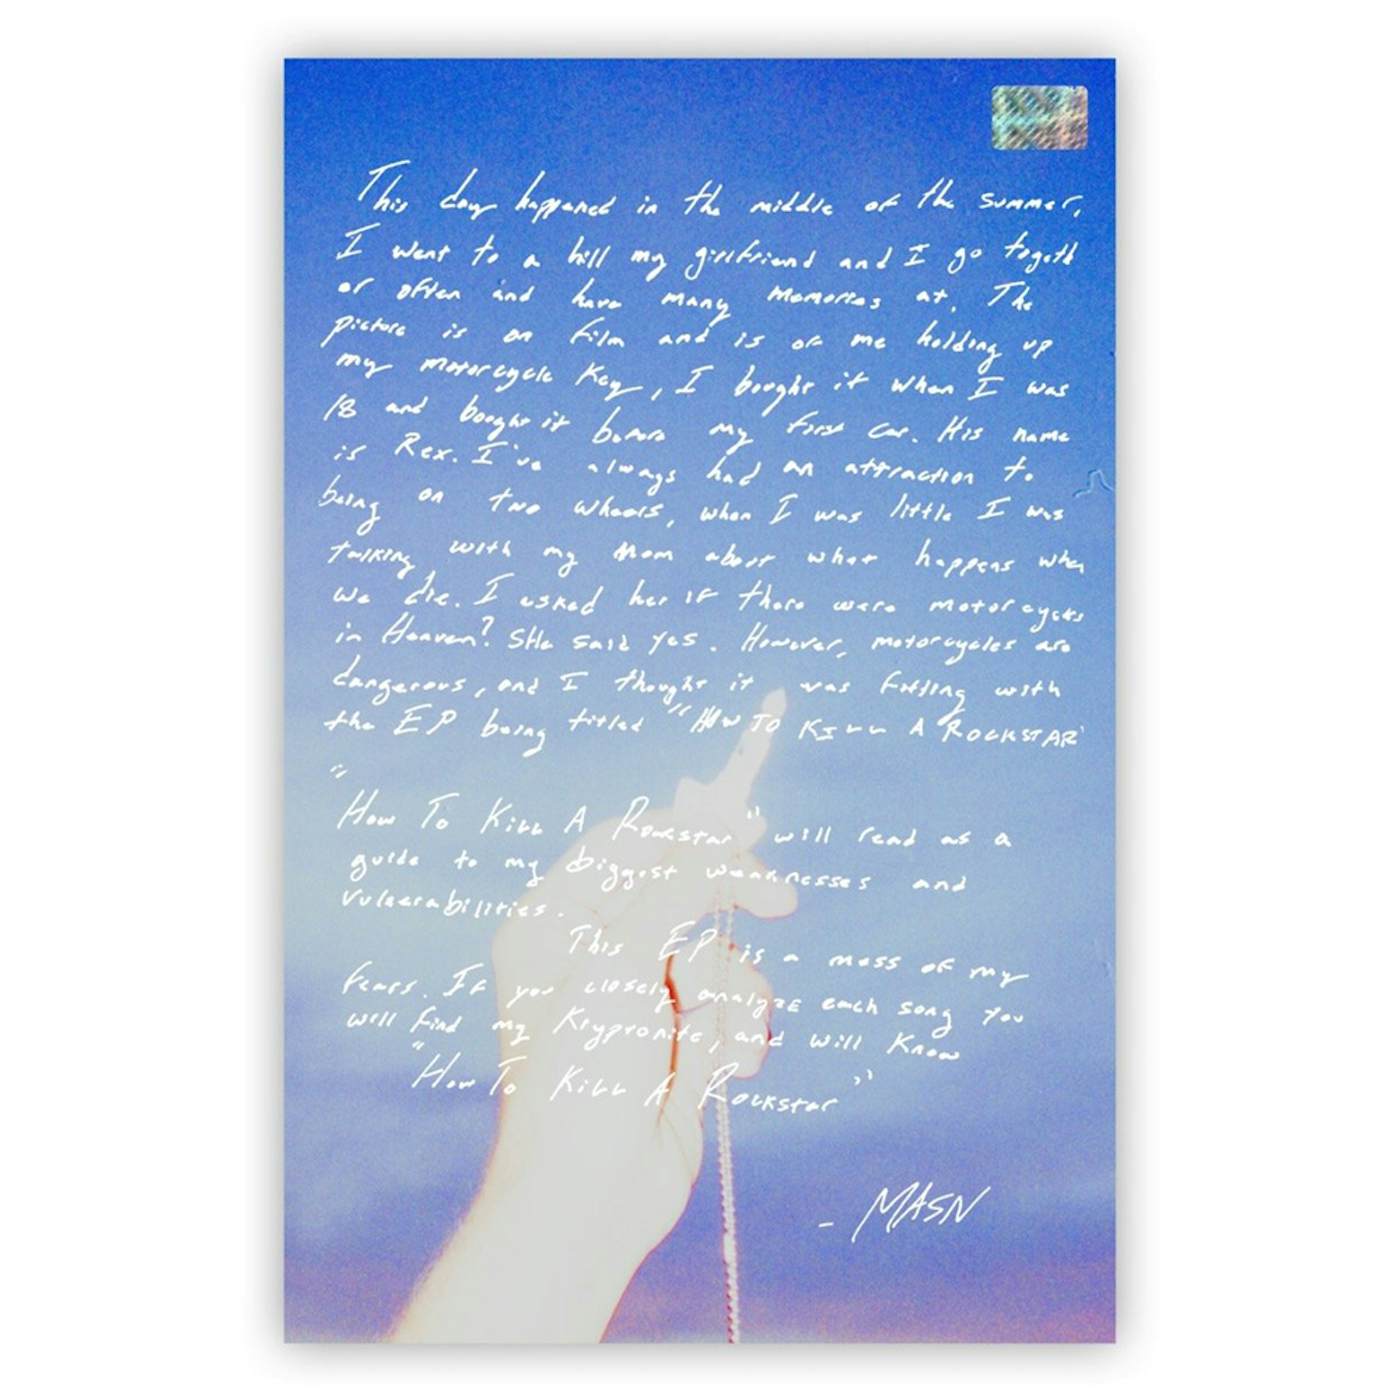 This day happened in the middle of the summer,
I went to a hill my girlfriend and I go togeth
er often and have many memories at. The
picture is on film and is of me holding up
my motorcycle key, I bought it when I was
18 and bought it before my first car. His name
is Rex. I've always had an attraction to
being on two wheels, when I was little I was
talking with my Mom about what happens when
we die. I asked her if there were motorcycles
in Heaven? SHe said yes. However, motorcycles are
dangerous, and I thought it was fitting with
the EP being titled "HOW TO KILL A ROCKSTAR"
"
How To Kill A Rockstar" will read as a
guide to my biggest weaknesses and
vulnerabilities.
This EP is a mess of my
fears. If you closely analyze each song you
will find my Kryptonite, and will know
"How To Kill A Rockstar"
- MASN